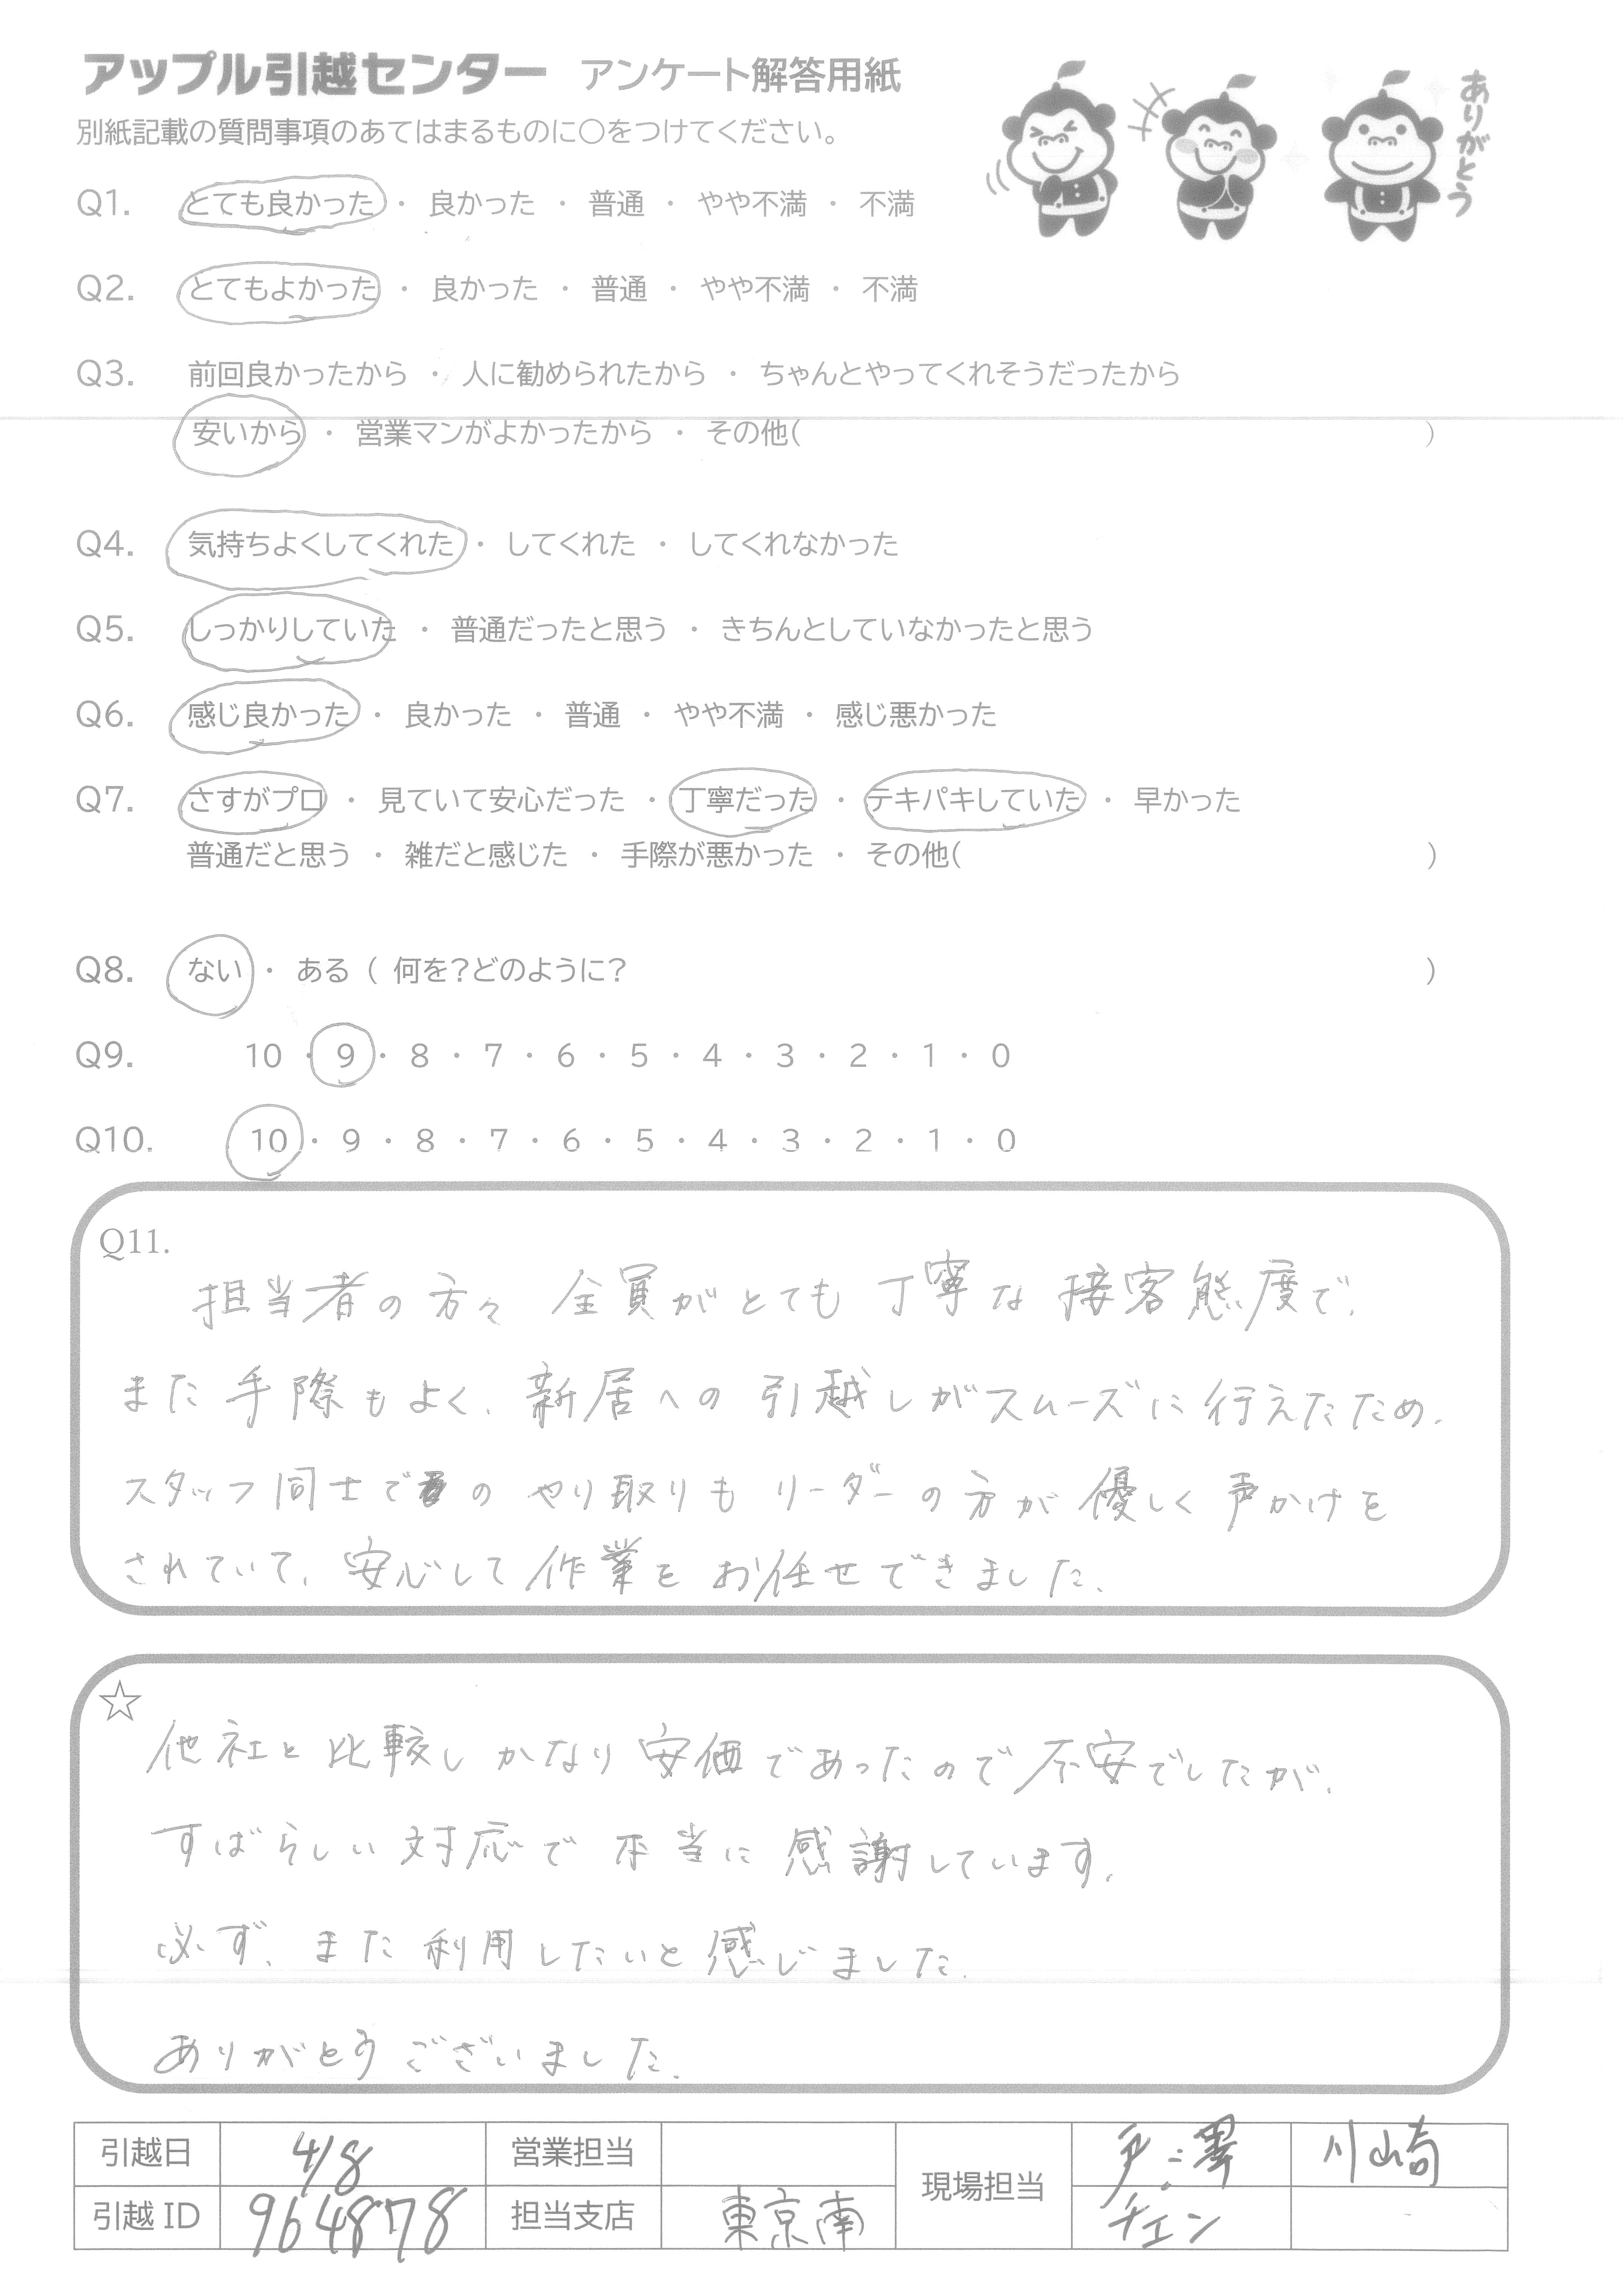 アップル引越センター アンケート解答用紙
ありがとう
別紙記載の質問事項のあてはまるものに〇をつけてください。
Q1. とても良かった ・ 良かった ・ 普通 ・ やや不満 ・ 不満
Q2. とてもよかった ・ 良かった ・ 普通 ・ やや不満 ・ 不満
Q3. 前回良かったから ・ 人に勧められたから ・ ちゃんとやってくれそうだったから
安いから ・ 営業マンがよかったから ・ その他( )
Q4. 気持ちよくしてくれた ・ してくれた ・ してくれなかった
Q5. しっかりしていた ・ 普通だったと思う ・ きちんとしていなかったと思う
Q6. 感じ良かった ・ 良かった ・ 普通 ・ やや不満 ・ 感じ悪かった
Q7. さすがプロ ・ 見ていて安心だった ・ 丁寧だった ・ テキパキしていた ・ 早かった
普通だと思う ・ 雑だと感じた ・ 手際が悪かった ・ その他( )
Q8. ない ・ ある ( 何を?どのように? )
Q9. 10 ・ 9 ・ 8 ・ 7 ・ 6 ・ 5 ・ 4 ・ 3 ・ 2 ・ 1 ・ 0
Q10. 10 ・ 9 ・ 8 ・ 7 ・ 6 ・ 5 ・ 4 ・ 3 ・ 2 ・ 1 ・ 0
Q11.
担当者の方々 全員がとても丁寧な接客態度で、
また手際もよく、新居への引越しがスムーズに行えたため、
スタッフ同士での やり取りも リーダーの方が優しく声かけを
されていて、安心して作業をお任せできました。
☆
他社と比較しかなり安価であったので不安でしたが、
すばらしい対応で本当に感謝しています。
必ず、また利用したいと感じました。
ありがとうございました。
引越日 4/8 営業担当 現場担当 戸澤 川崎
引越 ID 964878 担当支店 東京南 チェン